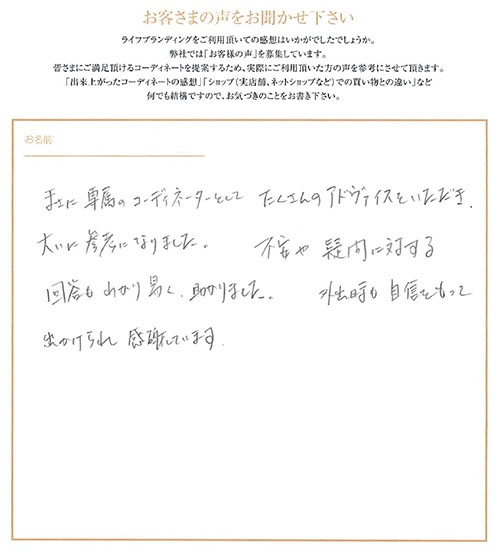 お客さまの声をお聞かせ下さい
ライフブランディングをご利用頂いての感想はいかがでしたでしょうか。
弊社では「お客様の声」を募集しています。
皆さまにご満足頂けるコーディネートを提案するため、実際にご利用頂いた方の声を参考にさせて頂きます。
「出来上がったコーディネートの感想」「ショップ(実店舗、ネットショップなど)での買い物との違い」など
何でも結構ですので、お気づきのことをお書き下さい。
お名前:
まさに 専属のコーディネーターとして たくさんのアドヴァイスをいただき、
大いに 参考になりました。 不安や 疑問に対する
回答も わかり易く、助かりました。 外出時も 自信をもって
出かけられ 感謝しています。